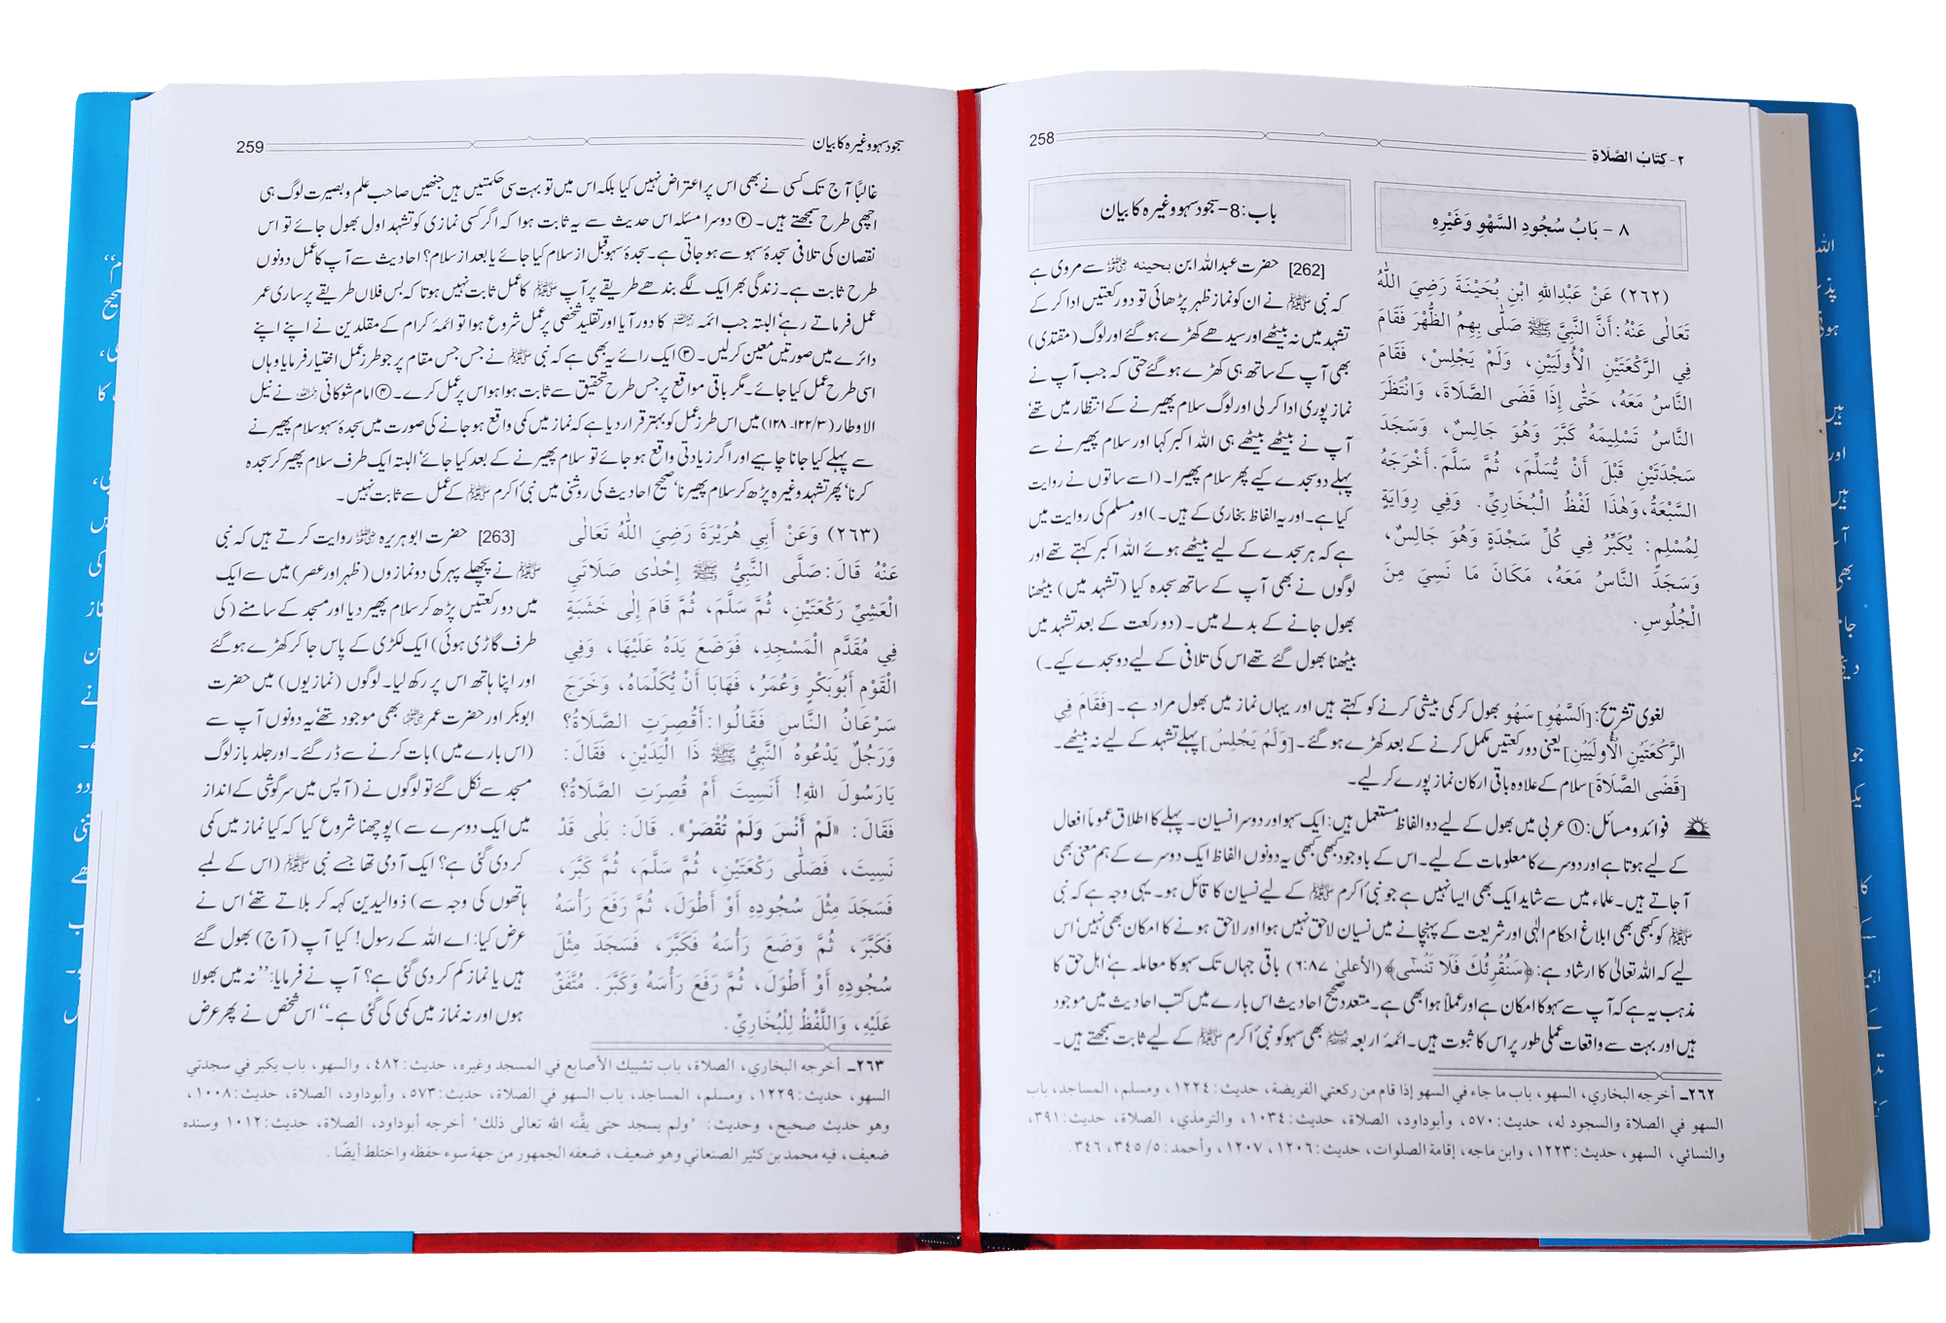 258
٢- كتاب الصّلاة
٨ - بَابُ سُجُودِ السَّهْوِ وَغَيْرِهِ
(٢٦٢) عَنْ عَبْدِاللهِ ابْنِ بُحَيْنَةَ رَضِيَ اللهُ
تَعَالٰى عَنْهُ: أَنَّ النَّبِيَّ ﷺ صَلّٰى بِهِمُ الظُّهْرَ فَقَامَ
فِي الرَّكْعَتَيْنِ الْأُولَيَيْنِ، وَلَمْ يَجْلِسْ، فَقَامَ
النَّاسُ مَعَهُ، حَتّٰى إِذَا قَضَى الصَّلَاةَ، وَانْتَظَرَ
النَّاسُ تَسْلِيمَهُ كَبَّرَ وَهُوَ جَالِسٌ، وَسَجَدَ
سَجْدَتَيْنِ قَبْلَ أَنْ يُّسَلِّمَ، ثُمَّ سَلَّمَ. أَخْرَجَهُ
السَّبْعَةُ، وَهٰذَا لَفْظُ الْبُخَارِيِّ. وَفِي رِوَايَةٍ
لِمُسْلِمٍ: يُكَبِّرُ فِي كُلِّ سَجْدَةٍ وَهُوَ جَالِسٌ،
وَسَجَدَ النَّاسُ مَعَهُ، مَكَانَ مَا نَسِيَ مِنَ
الْجُلُوسِ.
باب: 8- سجود سہو وغیرہ کا بیان
[262] حضرت عبداللہ ابن بحینہ رضی اللہ عنہ سے مروی ہے
کہ نبی ﷺ نے ان کو نماز ظہر پڑھائی تو دو رکعتیں ادا کر کے
تشہد میں نہ بیٹھے اور سیدھے کھڑے ہو گئے اور لوگ (مقتدی)
بھی آپ کے ساتھ ہی کھڑے ہو گئے حتی کہ جب آپ نے
نماز پوری ادا کر لی اور لوگ سلام پھیرنے کے انتظار میں تھے
آپ نے بیٹھے بیٹھے ہی اللہ اکبر کہا اور سلام پھیرنے سے
پہلے دو سجدے کیے پھر سلام پھیرا۔ (اسے ساتوں نے روایت
کیا ہے۔ اور یہ الفاظ بخاری کے ہیں۔) اور مسلم کی روایت میں
ہے کہ ہر سجدے کے لیے بیٹھے ہوئے اللہ اکبر کہتے تھے اور
لوگوں نے بھی آپ کے ساتھ سجدہ کیا (تشہد میں) بیٹھنا
بھول جانے کے بدلے میں۔ (دو رکعت کے بعد تشہد میں
بیٹھنا بھول گئے تھے اس کی تلافی کے لیے دو سجدے کیے۔)
لغوی تشریح: [اَلسَّهْوِ] سَهْو بھول کر کمی بیشی کرنے کو کہتے ہیں اور یہاں نماز میں بھول مراد ہے۔ [فَقَامَ فِي
الرَّكْعَتَيْنِ الْأُولَيَيْنِ] یعنی دو رکعتیں مکمل کرنے کے بعد کھڑے ہو گئے۔ [وَلَمْ يَجْلِسْ] پہلے تشہد کے لیے نہ بیٹھے۔
[قَضَى الصَّلَاةَ] سلام کے علاوہ باقی ارکان نماز پورے کر لیے۔
فوائد و مسائل: ① عربی میں بھول کے لیے دو الفاظ مستعمل ہیں: ایک سہو اور دوسرا نسیان۔ پہلے کا اطلاق عموماً افعال
کے لیے ہوتا ہے اور دوسرے کا معلومات کے لیے۔ اس کے باوجود کبھی کبھی یہ دونوں الفاظ ایک دوسرے کے ہم معنی بھی
آ جاتے ہیں۔ علماء میں سے شاید ایک بھی ایسا نہیں ہے جو نبی اکرم ﷺ کے لیے نسیان کا قائل ہو۔ یہی وجہ ہے کہ نبی
ﷺ کو کبھی بھی ابلاغ احکام الٰہی اور شریعت کے پہنچانے میں نسیان لاحق نہیں ہوا اور لاحق ہونے کا امکان بھی نہیں، اس
لیے کہ اللہ تعالیٰ کا ارشاد ہے: ﴿سَنُقْرِئُكَ فَلَا تَنْسٰى﴾ (الأعلىٰ ٦:٨٧) باقی جہاں تک سہو کا معاملہ ہے، اہل حق کا
مذہب یہ ہے کہ آپ سے سہو کا امکان ہے اور عملاً ہوا بھی ہے۔ متعدد صحیح احادیث اس بارے میں کتب احادیث میں موجود
ہیں اور بہت سے واقعات عملی طور پر اس کا ثبوت ہیں۔ ائمۂ اربعہ بھی سہو کو نبی اکرم ﷺ کے لیے ثابت سمجھتے ہیں۔
٢٦٢ـ أخرجه البخاري، السهو، باب ما جاء في السهو إذا قام من ركعتي الفريضة، حديث: ١٢٢٤، ومسلم، المساجد، باب
السهو في الصلاة والسجود له، حديث: ٥٧٠، وأبوداود، الصلاة، حديث: ١٠٣٤، والترمذي، الصلاة، حديث: ٣٩١،
والنسائي، السهو، حديث: ١٢٢٣، وابن ماجه، إقامة الصلوات، حديث: ١٢٠٦، ١٢٠٧، وأحمد: ٥/ ٣٤٥، ٣٤٦.
سجود سہو وغیرہ کا بیان
259
غالباً آج تک کسی نے بھی اس پر اعتراض نہیں کیا بلکہ اس میں تو بہت سی حکمتیں ہیں جنھیں صاحب علم و بصیرت لوگ ہی
اچھی طرح سمجھتے ہیں۔ ② دوسرا مسئلہ اس حدیث سے یہ ثابت ہوا کہ اگر کسی نمازی کو تشہد اول بھول جائے تو اس
نقصان کی تلافی سجدۂ سہو سے ہو جاتی ہے۔ سجدۂ سہو قبل از سلام کیا جائے یا بعد از سلام؟ احادیث سے آپ کا عمل دونوں
طرح ثابت ہے۔ زندگی بھر ایک لگے بندھے طریقے پر آپ ﷺ کا عمل ثابت نہیں ہوتا کہ بس فلاں طریقے پر ساری عمر
عمل فرماتے رہے، البتہ جب ائمہ کا دور آیا اور تقلید شخصی پر عمل شروع ہوا تو ائمۂ کرام کے مقلدین نے اپنے اپنے
دائرے میں صورتیں معین کر لیں۔ ③ ایک رائے یہ بھی ہے کہ نبی ﷺ نے جس جس مقام پر جو طرز عمل اختیار فرمایا وہاں
اسی طرح عمل کیا جائے۔ مگر باقی مواقع پر جس طرح تحقیق سے ثابت ہوا ہو اس پر عمل کرے۔ ④ امام شوکانی نے نیل
الاوطار (١٢٢/٣۔ ١٢٨) میں اس طرز عمل کو بہتر قرار دیا ہے کہ نماز میں کمی واقع ہو جانے کی صورت میں سجدۂ سہو سلام پھیرنے
سے پہلے کیا جانا چاہیے اور اگر زیادتی واقع ہو جائے تو سلام پھیرنے کے بعد کیا جائے، البتہ ایک طرف سلام پھیر کر سجدہ
کرنا، پھر تشہد وغیرہ پڑھ کر سلام پھیرنا، صحیح احادیث کی روشنی میں نبی اکرم ﷺ کے عمل سے ثابت نہیں۔
(٢٦٣) وَعَنْ أَبِي هُرَيْرَةَ رَضِيَ اللهُ تَعَالٰى
عَنْهُ قَالَ: صَلَّى النَّبِيُّ ﷺ إِحْدٰى صَلَاتَيِ
الْعَشِيِّ رَكْعَتَيْنِ، ثُمَّ سَلَّمَ، ثُمَّ قَامَ إِلٰى خَشَبَةٍ
فِي مُقَدَّمِ الْمَسْجِدِ، فَوَضَعَ يَدَهُ عَلَيْهَا، وَفِي
الْقَوْمِ أَبُوبَكْرٍ وَعُمَرُ، فَهَابَا أَنْ يُّكَلِّمَاهُ، وَخَرَجَ
سَرْعَانُ النَّاسِ فَقَالُوا: أَقُصِرَتِ الصَّلَاةُ؟
وَرَجُلٌ يَدْعُوهُ النَّبِيُّ ﷺ ذَا الْيَدَيْنِ، فَقَالَ:
يَارَسُولَ اللهِ! أَنَسِيتَ أَمْ قُصِرَتِ الصَّلَاةُ؟
فَقَالَ: «لَمْ أَنْسَ وَلَمْ تُقْصَرْ». قَالَ: بَلٰى قَدْ
نَسِيتَ، فَصَلّٰى رَكْعَتَيْنِ، ثُمَّ سَلَّمَ، ثُمَّ كَبَّرَ،
فَسَجَدَ مِثْلَ سُجُودِهِ أَوْ أَطْوَلَ، ثُمَّ رَفَعَ رَأْسَهُ
فَكَبَّرَ، ثُمَّ وَضَعَ رَأْسَهُ فَكَبَّرَ، فَسَجَدَ مِثْلَ
سُجُودِهِ أَوْ أَطْوَلَ، ثُمَّ رَفَعَ رَأْسَهُ وَكَبَّرَ. مُتَّفَقٌ
عَلَيْهِ، وَاللَّفْظُ لِلْبُخَارِيِّ.
[263] حضرت ابوہریرہ رضی اللہ عنہ روایت کرتے ہیں کہ نبی
ﷺ نے پچھلے پہر کی دو نمازوں (ظہر اور عصر) میں سے ایک
میں دو رکعتیں پڑھ کر سلام پھیر دیا اور مسجد کے سامنے (کی
طرف گاڑی ہوئی) ایک لکڑی کے پاس جا کر کھڑے ہو گئے
اور اپنا ہاتھ اس پر رکھ لیا۔ لوگوں (نمازیوں) میں حضرت
ابوبکر اور حضرت عمر بھی موجود تھے، یہ دونوں آپ سے
(اس بارے میں) بات کرنے سے ڈر گئے۔ اور جلد باز لوگ
مسجد سے نکل گئے تو لوگوں نے (آپس میں سرگوشی کے انداز
میں ایک دوسرے سے) پوچھنا شروع کیا کہ کیا نماز میں کمی
کر دی گئی ہے؟ ایک آدمی تھا جسے نبی ﷺ (اس کے لمبے
ہاتھوں کی وجہ سے) ذوالیدین کہہ کر بلاتے تھے، اس نے
عرض کیا: اے اللہ کے رسول! کیا آپ (آج) بھول گئے
ہیں یا نماز کم کر دی گئی ہے؟ آپ نے فرمایا: ”نہ میں بھولا
ہوں اور نہ نماز میں کمی کی گئی ہے۔“ اس شخص نے پھر عرض
٢٦٣ـ أخرجه البخاري، الصلاة، باب تشبيك الأصابع في المسجد وغيره، حديث: ٤٨٢، والسهو، باب يكبر في سجدتي
السهو، حديث: ١٢٢٩، ومسلم، المساجد، باب السهو في الصلاة، حديث: ٥٧٣، وأبوداود، الصلاة، حديث: ١٠٠٨،
وهو حديث صحيح، وحديث: "ولم يسجد حتى يقّنه الله تعالى ذلك" أخرجه أبوداود، الصلاة، حديث: ١٠١٢ وسنده
ضعيف، فيه محمد بن كثير الصنعاني وهو ضعيف، ضعفه الجمهور من جهة سوء حفظه واختلط أيضًا.